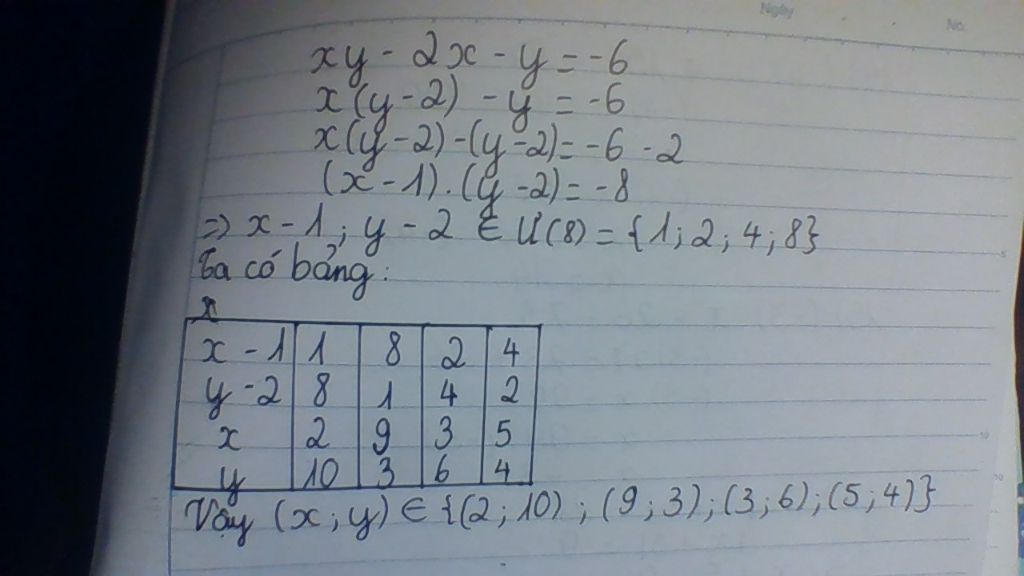 Ngày
No.
xy - 2x - y = -6
x(y-2) - y = -6
x(y-2)-(y-2)= -6 -2
(x-1).(y-2)= -8
=> x-1; y-2 ∈ Ư(8) = {1; 2; 4; 8}
Ta có bảng:
x
x-1 1 8 2 4
y-2 8 1 4 2
x 2 9 3 5
y 10 3 6 4
Vậy (x; y) ∈ {(2; 10) ; (9; 3); (3; 6); (5; 4)}